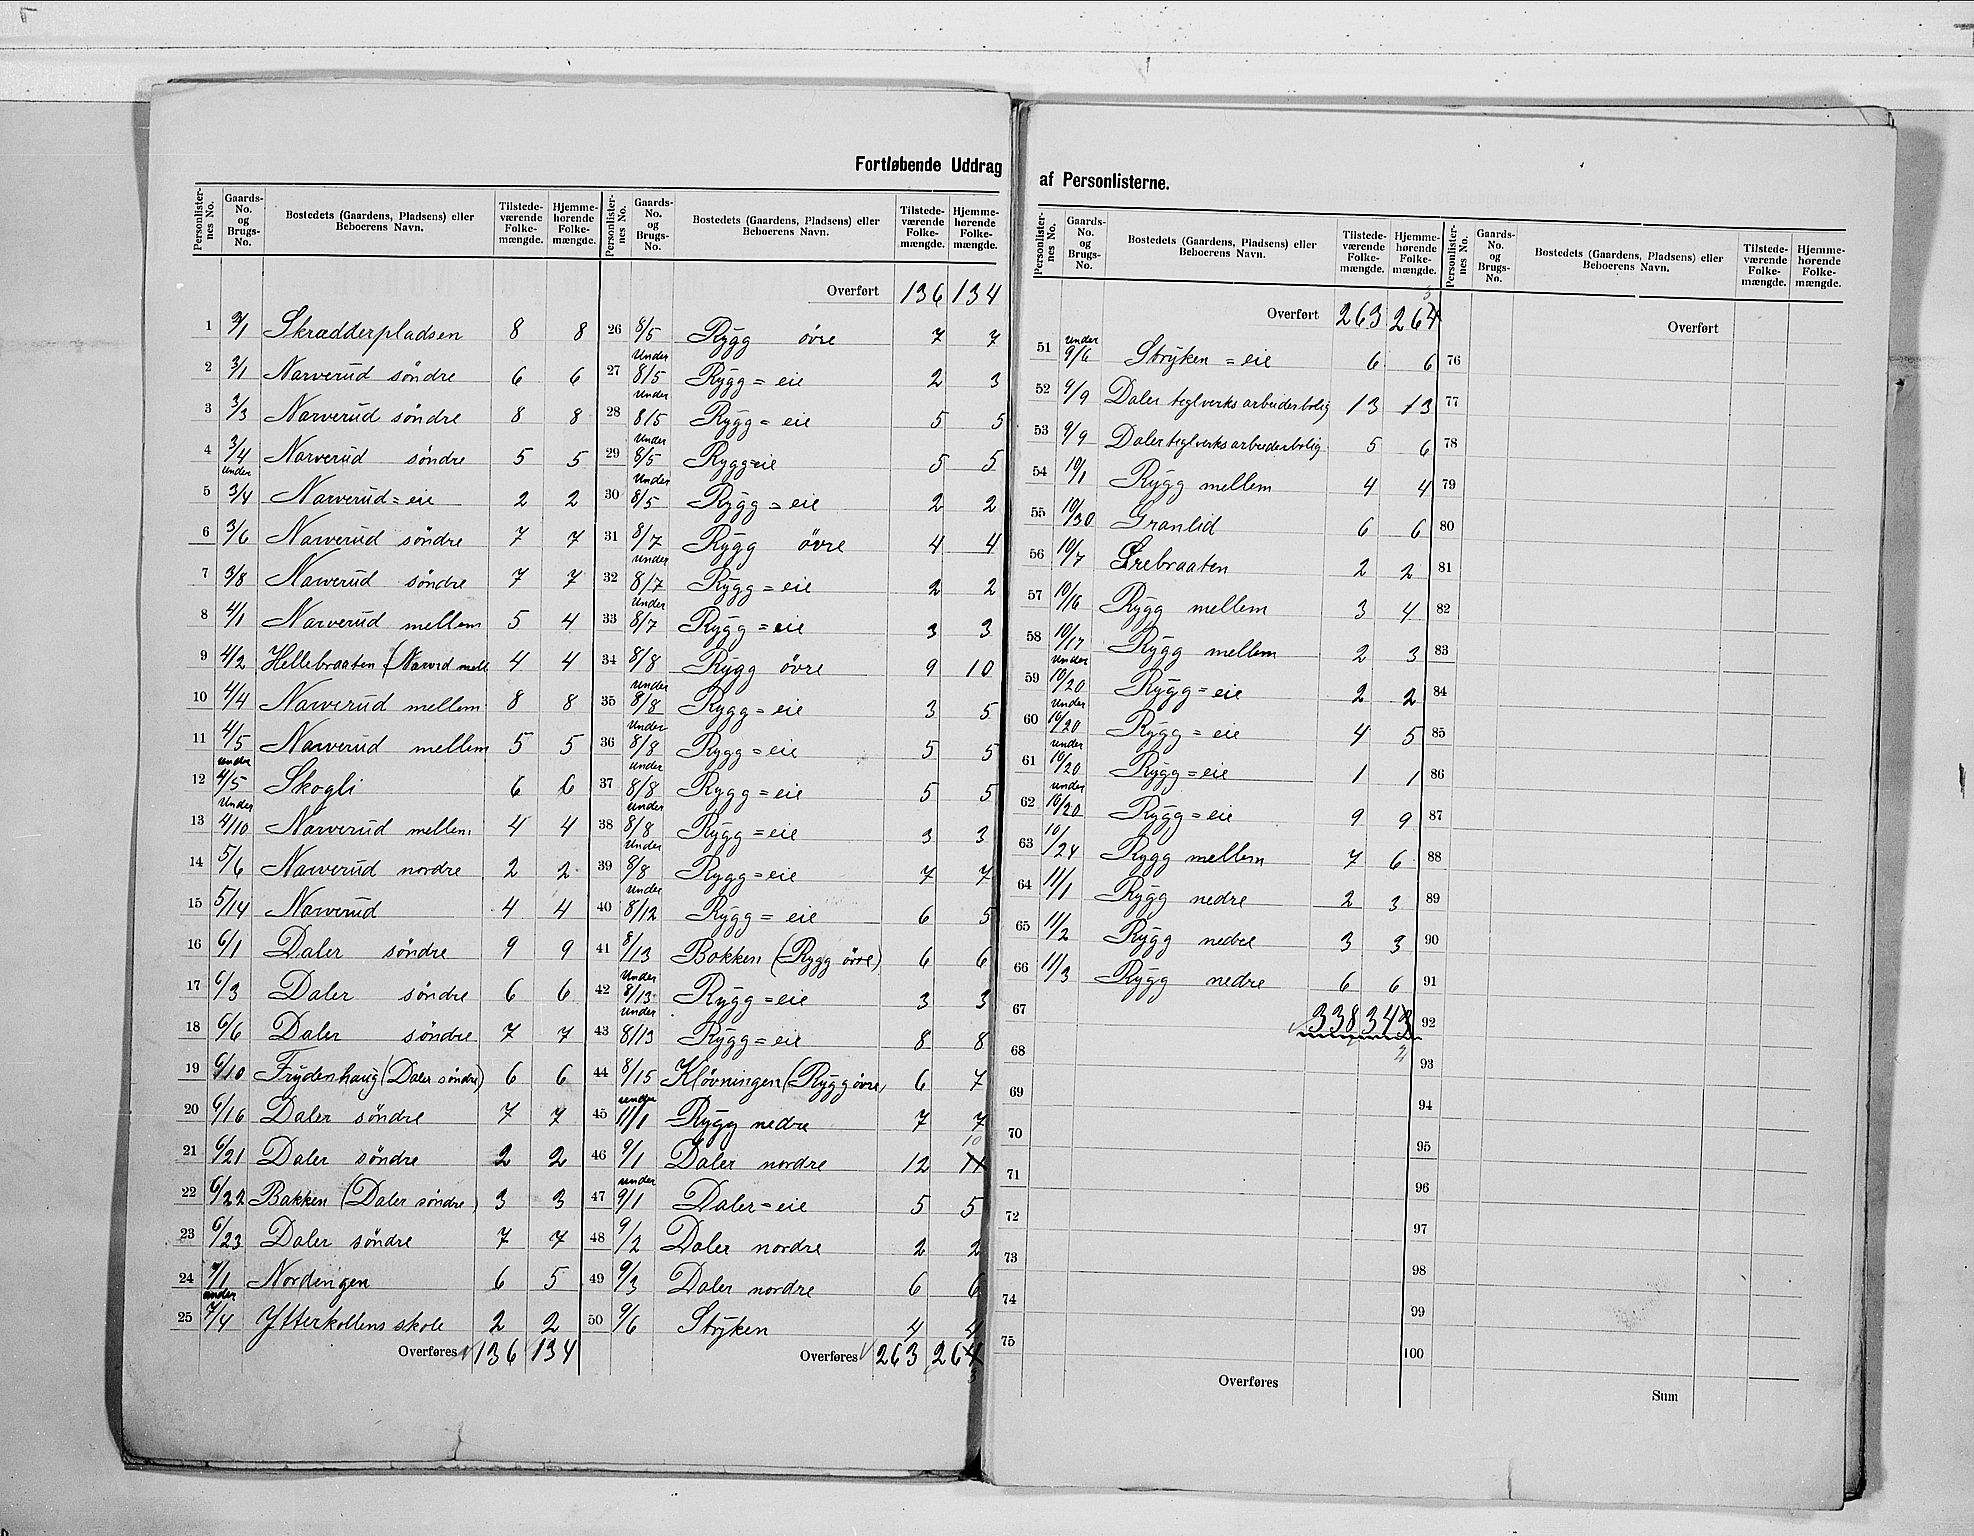 Fortløbende Uddrag
af Personlisterne.
Personlister-nes No. Gaards-No. og Brugs-No. Bostedets (Gaardens, Pladsens) eller Beboerens Navn. Tilstede-værende Folke-mængde. Hjemme-hørende Folke-mængde.
1 3/1 Skrædderpladsen 8 8
2 3/1 Narverud söndre 6 6
3 3/3 Narverud söndre 8 8
4 3/4 Narverud söndre 5 5
5 under 3/4 Narverud=eie 2 2
6 3/6 Narverud söndre 7 7
7 3/8 Narverud söndre 7 7
8 4/1 Narverud mellem 5 4
9 4/2 Hellebraaten (Narvrd mell 4 4
10 4/4 Narverud mellem 8 8
11 4/5 Narverud mellem 5 5
12 under 4/5 Skogli 6 6
13 Under 4/10 Narverud mellem 4 4
14 5/6 Narverud nordre 2 2
15 5/14 Narverud 4 4
16 6/1 Daler söndre 9 9
17 6/3 Daler söndre 6 6
18 6/6 Daler söndre 7 7
19 6/10 Frydenhaug (Daler söndre) 6 6
20 6/16 Daler söndre 7 7
21 6/21 Daler söndre 2 2
22 6/22 Bakken (Daler söndre) 3 3
23 6/23 Daler söndre 7 7
24 7/1 Nordengen 6 5
25 under 7/4 Ytterkollens skole 2 2
Overføres 136 134
Personlister-nes No. Gaards-No. og Brugs-No. Bostedets (Gaardens, Pladsens) eller Beboerens Navn. Tilstede-værende Folke-mængde. Hjemme-hørende Folke-mængde.
Overført 136 134
26 8/5 Rygg övre 7 7
27 Under 8/5 Rygg=eie 2 3
28 Under 8/5 Rygg=eie 5 5
29 Under 8/5 Rygg=eie 5 5
30 Under 8/5 Rygg=eie 2 2
31 8/7 Rygg övre 4 4
32 under 8/7 Rygg=eie 2 2
33 Under 8/7 Rygg=eie 3 3
34 8/8 Rygg övre 9 10
35 under 8/8 Rygg=eie 3 5
36 Under 8/8 Rygg=eie 5 5
37 under 8/8 Rygg=eie 5 5
38 under 8/8 Rygg=eie 3 3
39 Under 8/8 Rygg=eie 7 7
40 under 8/12 Rygg=eie 6 5
41 8/13 Bakken (Rygg övre) 6 6
42 Under 8/13 Rygg=eie 3 3
43 under 8/13 Rygg=eie 8 8
44 8/15 Klövningen (Rygg övre) 6 7
45 under 11/1 Rygg nedre 7 7
46 9/1 Daler nordre 12 11 10
47 under 9/1 Daler=eie 5 5
48 9/2 Daler nordre 2 2
49 9/3 Daler nordre 6 6
50 9/6 Stryken 4 4
Overføres 263 264 3
Personlister-nes No. Gaards-No. og Brugs-No. Bostedets (Gaardens, Pladsens) eller Beboerens Navn. Tilstede-værende Folke-mængde. Hjemme-hørende Folke-mængde.
Overført 263 264 3
51 under 9/6 Stryken=eie 6 6
52 9/9 Daler teglverks arbeiderbolig 13 13
53 9/9 Daler teglverks arbeiderbolig 5 6
54 10/1 Rygg mellem 4 4
55 10/30 Granlid 6 6
56 10/7 Grebraaten 2 2
57 10/16 Rygg mellem 3 4
58 10/17 Rygg mellem 2 3
59 under 10/20 Rygg=eie 2 2
60 under 10/20 Rygg=eie 4 5
61 under 10/20 Rygg=eie 1 1
62 under 10/20 Rygg=eie 9 9
63 10/24 Rygg mellem 7 6
64 11/1 Rygg nedre 2 3
65 11/2 Rygg nedre 3 3
66 11/3 Rygg nedre 6 6
67 338 343 2
68
69
70
71
72
73
74
75
Overføres
Personlister-nes No. Gaards-No. og Brugs-No. Bostedets (Gaardens, Pladsens) eller Beboerens Navn. Tilstede-værende Folke-mængde. Hjemme-hørende Folke-mængde.
Overført
76
77
78
79
80
81
82
83
84
85
86
87
88
89
90
91
92
93
94
95
96
97
98
99
100
Sum